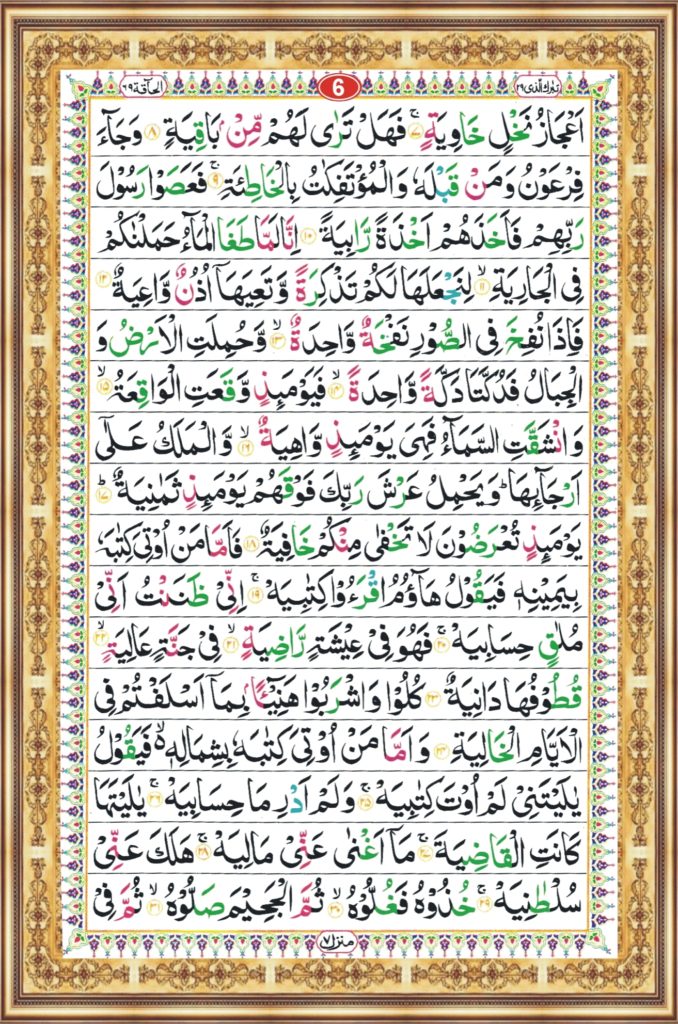 تبٰرك الذی ٢٩
6
الحآقة ٦٩
اَعْجَازُ نَخْلٍ خَاوِیَةٍ ۚ‏ ﴿۷﴾ فَهَلْ تَرٰی لَهُمْ مِّنْۢ بَاقِیَةٍ ﴿۸﴾ وَجَآءَ
فِرْعَوْنُ وَمَنْ قَبْلَهٗ وَالْمُؤْتَفِكٰتُ بِالْخَاطِئَةِ ۚ ﴿۹﴾ فَعَصَوْا رَسُوْلَ
رَبِّهِمْ فَاَخَذَهُمْ اَخْذَةً رَّابِیَةً ﴿۱۰﴾ اِنَّا لَمَّا طَغَا الْمَآءُ حَمَلْنٰكُمْ
فِی الْجَارِیَةِ ۙ ﴿۱۱﴾ لِنَجْعَلَهَا لَكُمْ تَذْكِرَةً وَّتَعِیَهَاۤ اُذُنٌ وَّاعِیَةٌ ﴿۱۲﴾
فَاِذَا نُفِخَ فِی الصُّوْرِ نَفْخَةٌ وَّاحِدَةٌ ۙ ﴿۱۳﴾ وَّحُمِلَتِ الْاَرْضُ وَ
الْجِبَالُ فَدُكَّتَا دَكَّةً وَّاحِدَةً ۙ ﴿۱۴﴾ فَیَوْمَئِذٍ وَّقَعَتِ الْوَاقِعَةُ ۙ ﴿۱۵﴾
وَانْشَقَّتِ السَّمَآءُ فَهِیَ یَوْمَئِذٍ وَّاهِیَةٌ ۙ ﴿۱۶﴾ وَّالْمَلَكُ عَلٰۤی
اَرْجَآئِهَا ؕ وَیَحْمِلُ عَرْشَ رَبِّكَ فَوْقَهُمْ یَوْمَئِذٍ ثَمٰنِیَةٌ ؕ ﴿۱۷﴾
یَوْمَئِذٍ تُعْرَضُوْنَ لَا تَخْفٰی مِنْكُمْ خَافِیَةٌ ﴿۱۸﴾ فَاَمَّا مَنْ اُوْتِیَ كِتٰبَهٗ
بِیَمِیْنِهٖ فَیَقُوْلُ هَآؤُمُ اقْرَءُوْا كِتٰبِیَهْ ۚ ﴿۱۹﴾ اِنِّیْ ظَنَنْتُ اَنِّیْ
مُلٰقٍ حِسَابِیَهْ ۚ ﴿۲۰﴾ فَهُوَ فِیْ عِیْشَةٍ رَّاضِیَةٍ ۙ ﴿۲۱﴾ فِیْ جَنَّةٍ عَالِیَةٍ ۙ ﴿۲۲﴾
قُطُوْفُهَا دَانِیَةٌ ﴿۲۳﴾ كُلُوْا وَاشْرَبُوْا هَنِیْٓئًۢا بِمَاۤ اَسْلَفْتُمْ فِی
الْاَیَّامِ الْخَالِیَةِ ﴿۲۴﴾ وَاَمَّا مَنْ اُوْتِیَ كِتٰبَهٗ بِشِمَالِهٖ ۙ۬ فَیَقُوْلُ
یٰلَیْتَنِیْ لَمْ اُوْتَ كِتٰبِیَهْ ۚ ﴿۲۵﴾ وَلَمْ اَدْرِ مَا حِسَابِیَهْ ۚ ﴿۲۶﴾ یٰلَیْتَهَا
كَانَتِ الْقَاضِیَةَ ۚ ﴿۲۷﴾ مَاۤ اَغْنٰی عَنِّیْ مَالِیَهْ ۚ ﴿۲۸﴾ هَلَكَ عَنِّیْ
سُلْطٰنِیَهْ ۚ ﴿۲۹﴾ خُذُوْهُ فَغُلُّوْهُ ۙ ﴿۳۰﴾ ثُمَّ الْجَحِیْمَ صَلُّوْهُ ۙ ﴿۳۱﴾ ثُمَّ فِیْ
منزل ۷